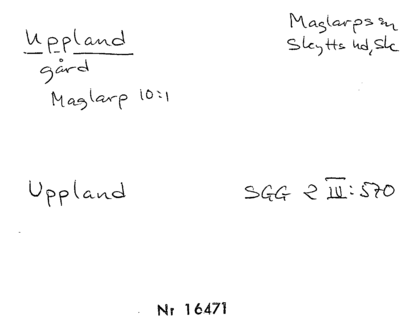 Uppland
gård
Maglarp 10:1
Maglarps sn
Skytts hd, Sk
Uppland
SGG 2 III:570
Nr 16471